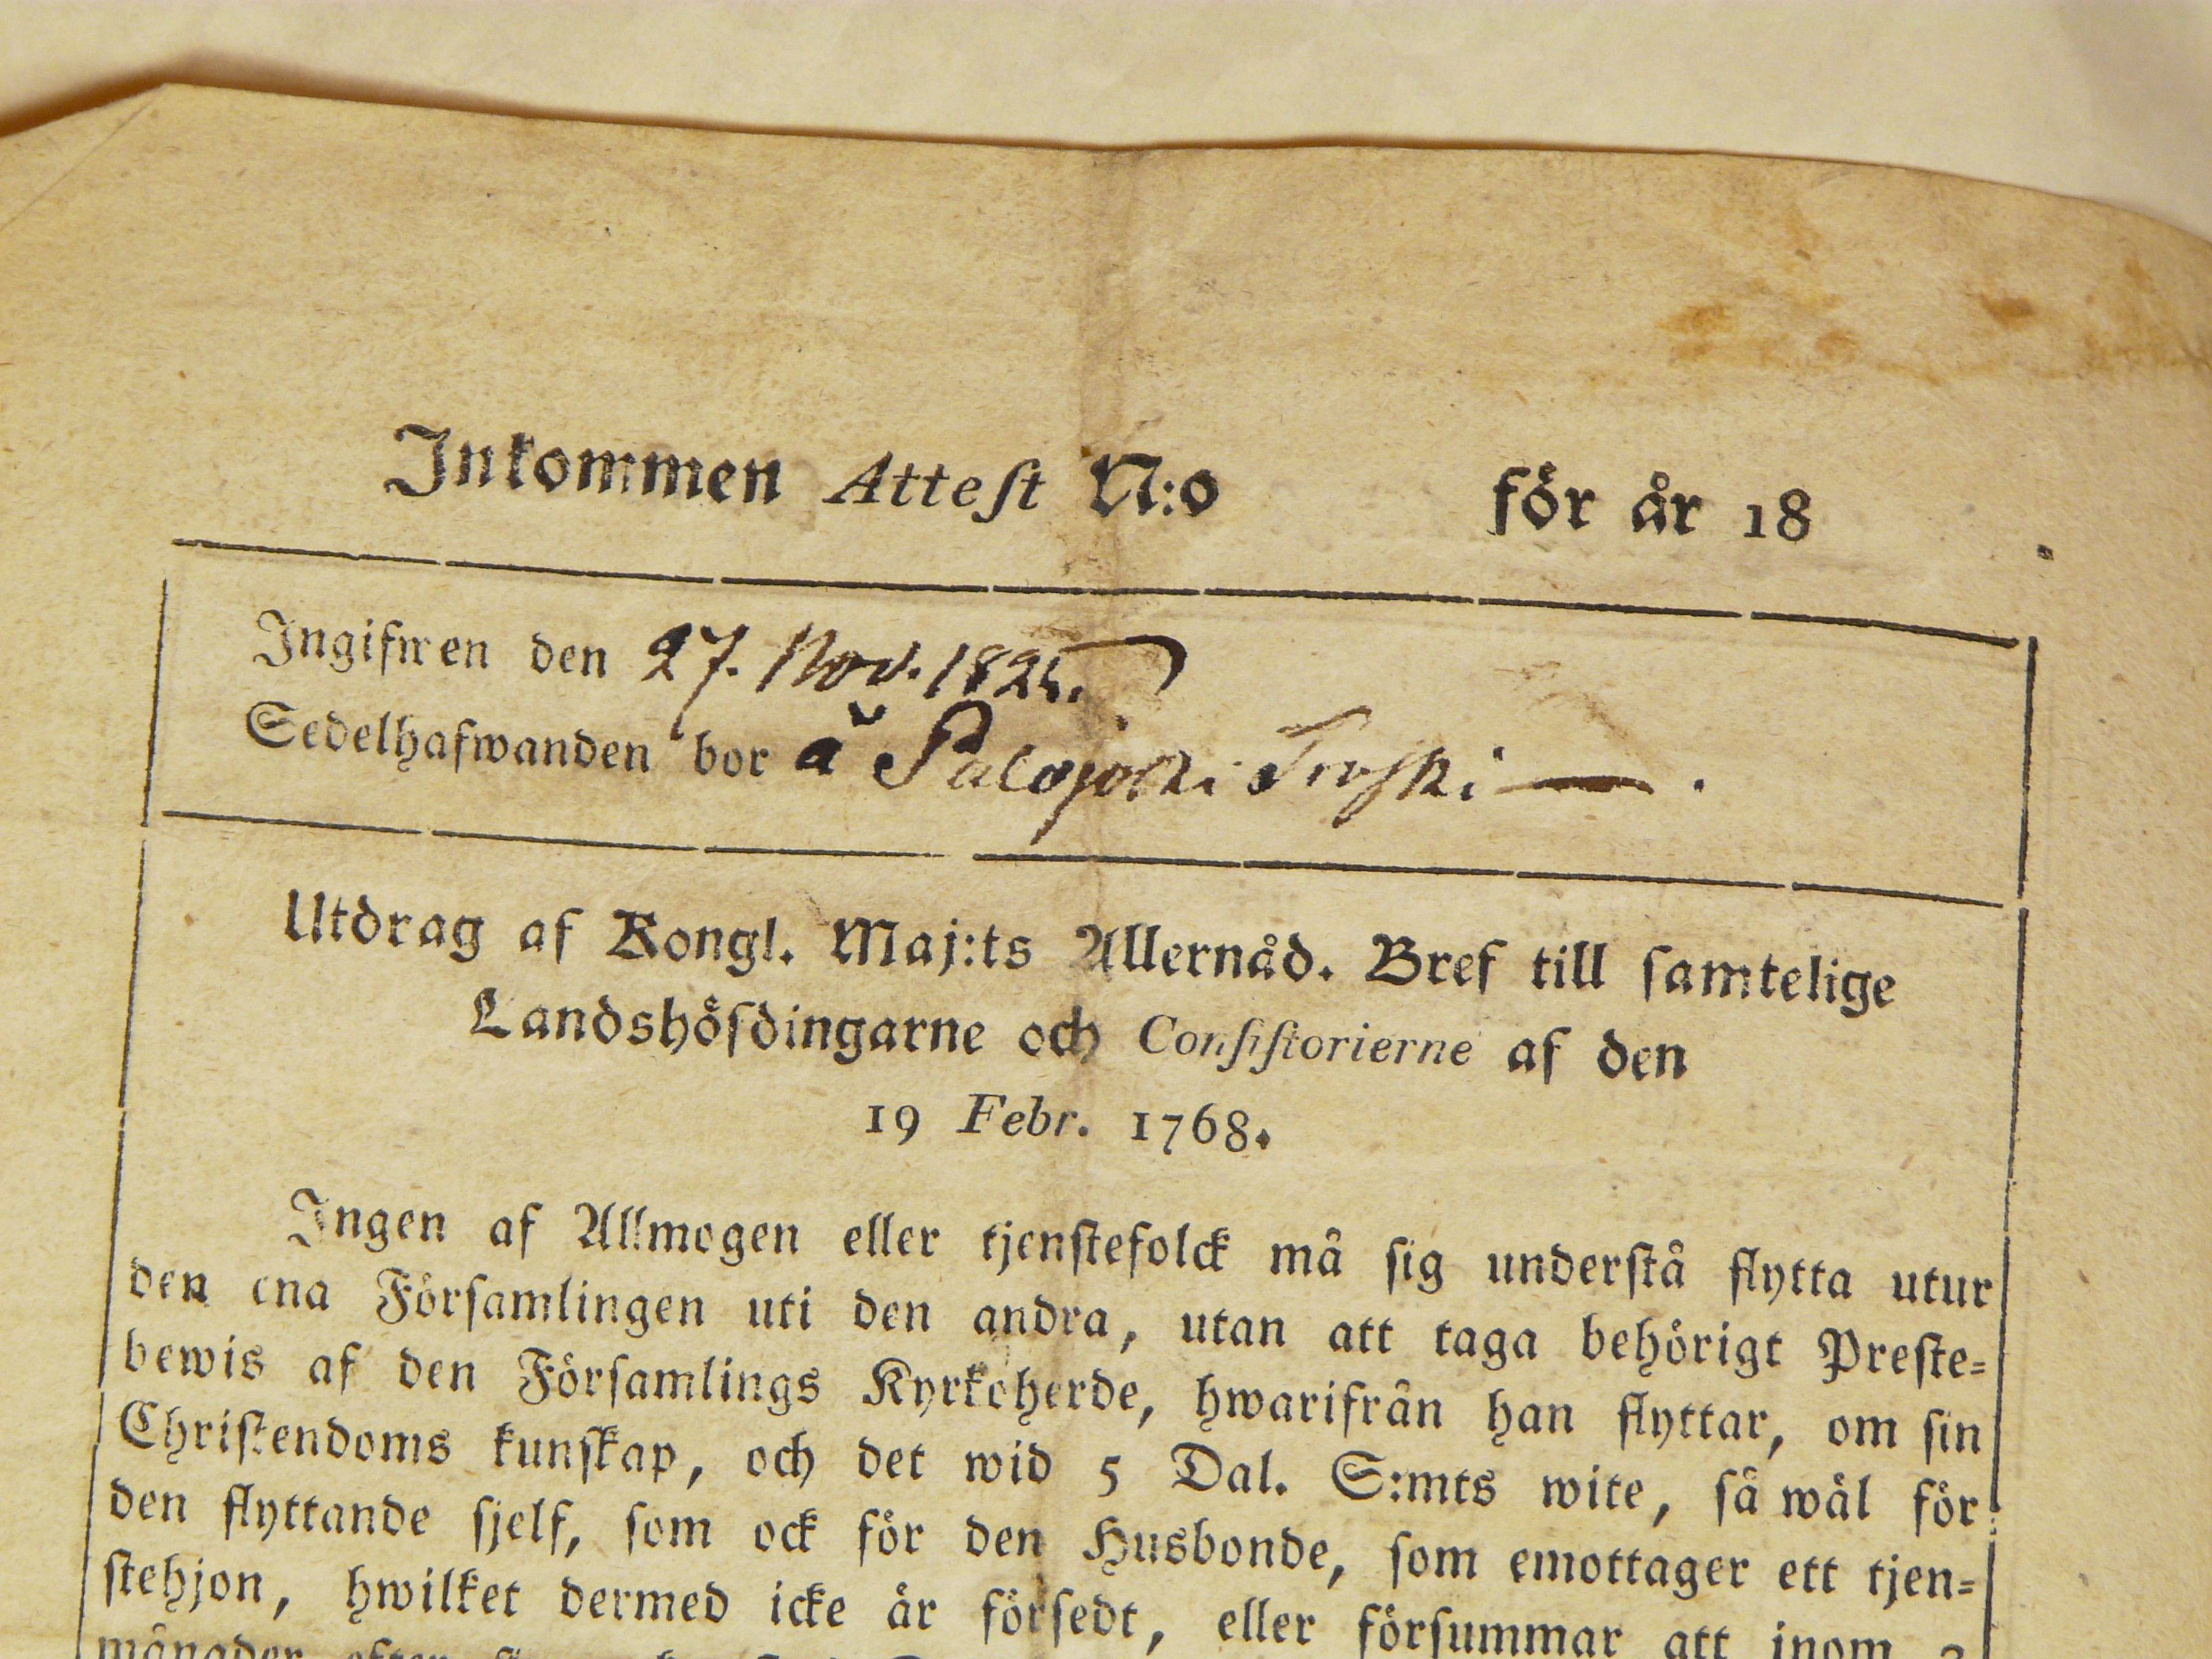 Inkommen Attest N:o för år 18 .
Ingifwen den 27. Nov. 1825.
Sedelhafwanden bor å Palojoki
Utdrag af Kongl. Maj:ts Allernåd. Bref till samtelige
Landshöfdingarne och Consistorierne af den
19 Febr. 1768.
Ingen af Allmogen eller tjenstefolck må sig understå flytta utur
den ena Församlingen uti den andra, utan att taga behörigt Preste-
bewis af den Församlings Kyrkoherde, hwarifrån han flyttar, om sin
Christendoms kunskap, och det wid 5 Dal. S:mts wite, så wäl för
den flyttande sjelf, som ock för den Husbonde, som emottager ett tjen-
stehjon, hwilket dermed icke är försedt, eller försummar att inom
månader efter